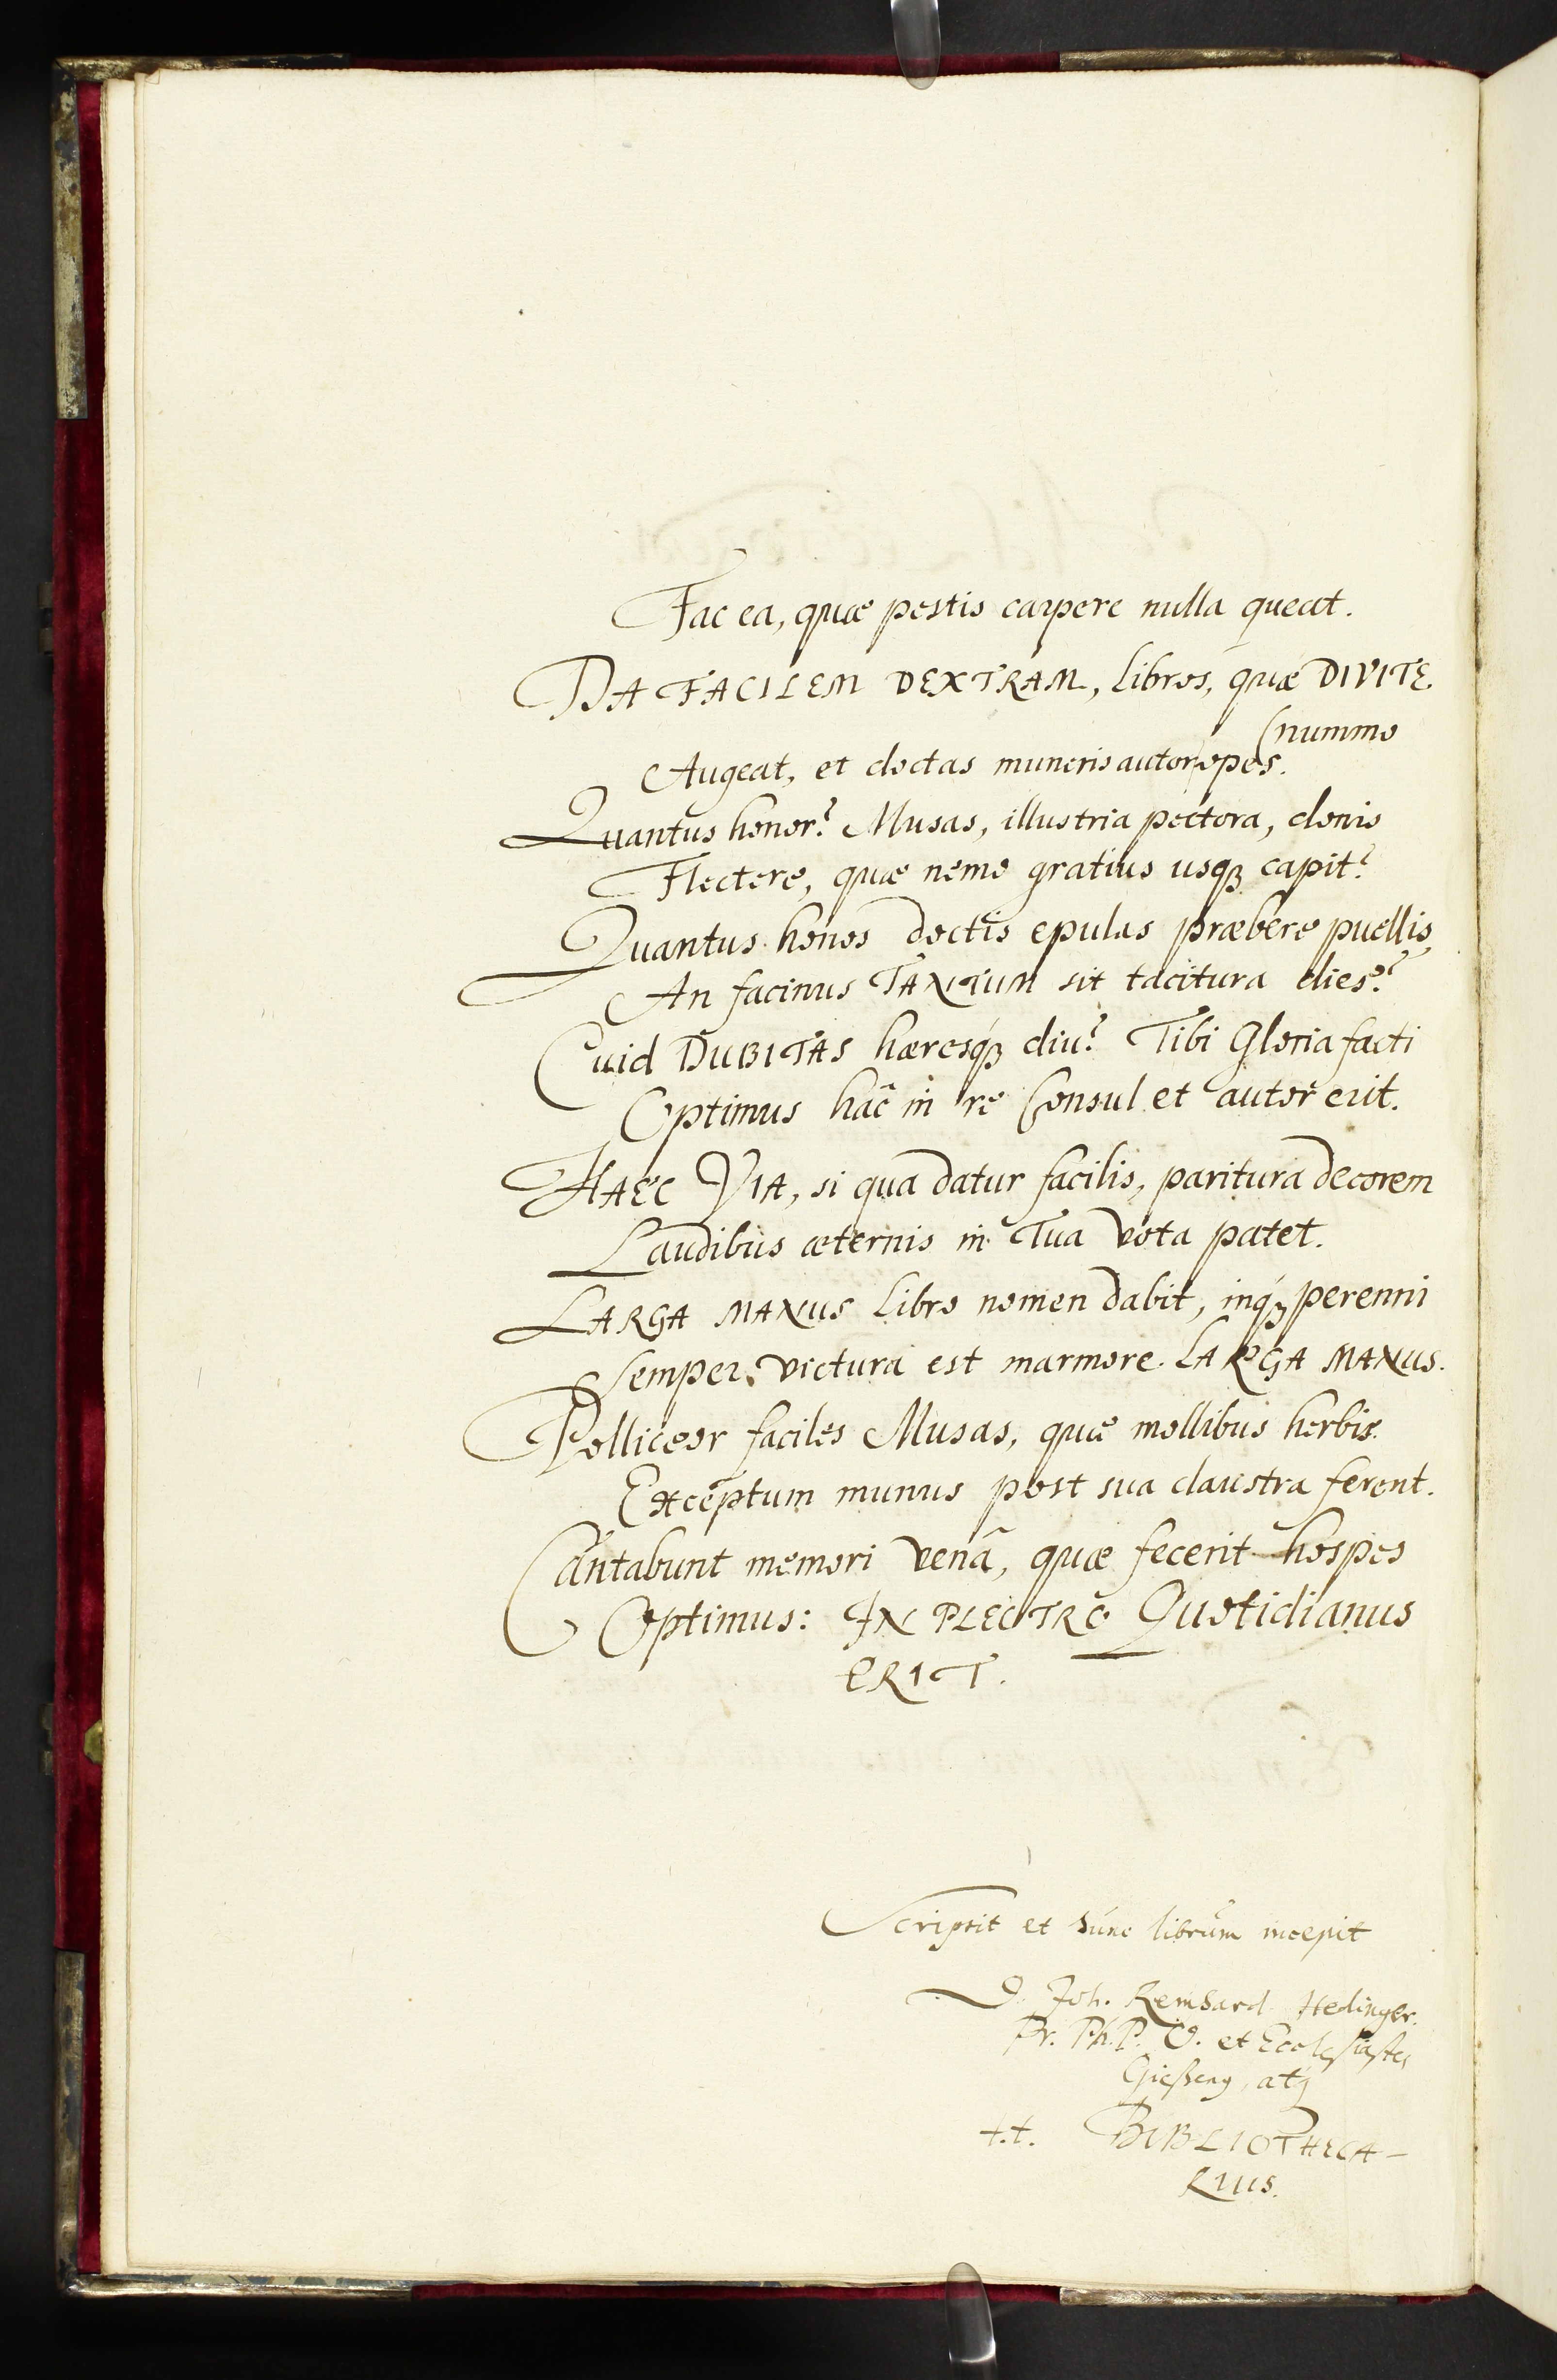 Fac ea, quæ pestis carpere nulla queat.
DA FACILEM DEXTRAM, libros, quæ DIVITE
(nummo
Augeat, et doctas muneris autor opes.
Quantus honor? Musas, illustria pectora, donis
Flectere, quæ nemo gratius usqꝫ capit?
Quantus honos doctis epulas præbere puellis,
An facinus TANTUM sit tacitura dies?
Quid DUBITAS hæresqꝫ diu? Tibi Gloria facti
Optimus hâc in re Consul et autor erit.
HAEC VIA, si qua datur facilis, paritura decorem
Laudibus æternis in Tua vota patet.
LARGA MANUS libro nomen dabit, inqꝫ perenni
Semper victura est marmore LARGA MANUS.
Polliceor faciles Musas, quæ mollibus herbis
Exceptum munus post sua claustra ferent.
Cantabunt memori venâ, quæ fecerit hospes
Optimus: IN PLECTRO Quotidianus
ERIT.
Scripsit et hunc librum incepit
D. Joh. Reinhard Hedinger.
Pr. Ph. P. O. et Ecclesiastes
Gießens, atq
t.t. BIBLIOTHECA-
RIUS.